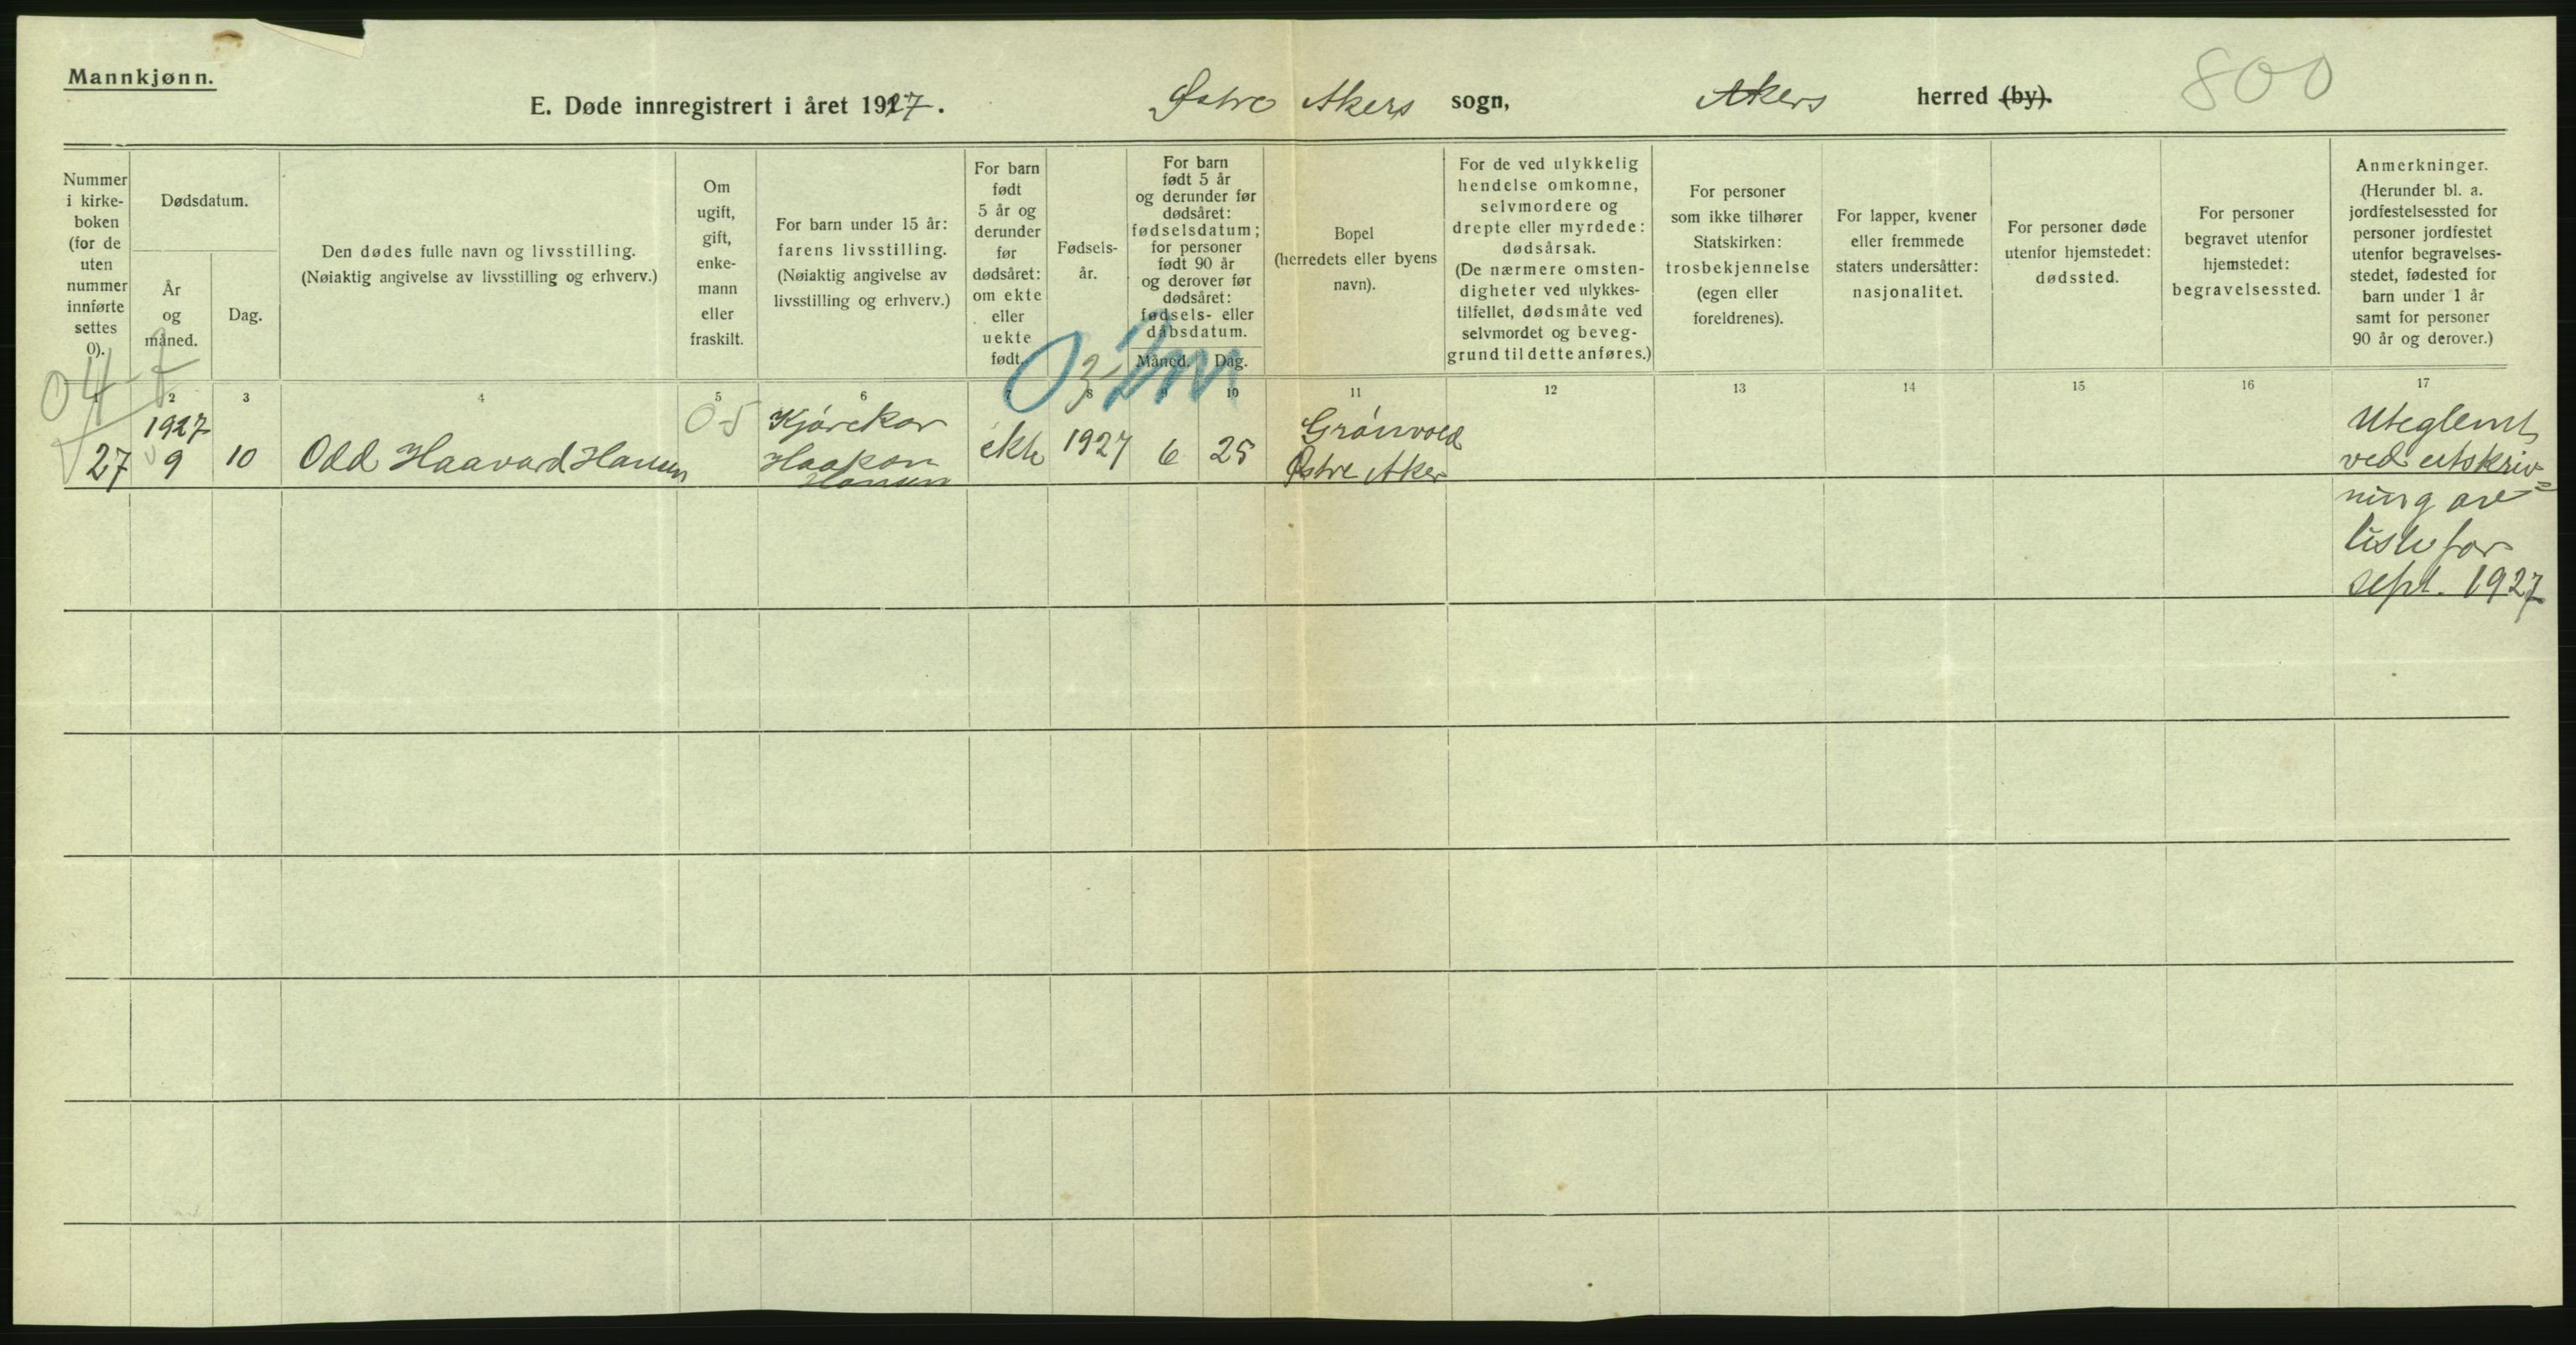 Mannkjønn.
800
E. Døde innregistrert i året 1927. Østre Akers sogn, Akers herred (by).
Nummer
i kirke-
boken
(for de
uten
nummer
innførte
settes
0).
Dødsdatum.
År
og
måned.
Dag.
Den dødes fulle navn og livsstilling.
(Nøiaktig angivelse av livsstilling og erhverv.)
Om
ugift,
gift,
enke-
mann
eller
fraskilt.
For barn under 15 år:
farens livsstilling.
(Nøiaktig angivelse av
livsstilling og erhverv.)
For barn
født
5 år og
derunder
før
dødsåret:
om ekte
eller
uekte
født.
Fødsels-
år.
For barn
født 5 år
og derunder før
dødsåret:
fødselsdatum;
for personer
født 90 år
og derover før
dødsåret:
fødsels- eller
dåbsdatum.
Måned. Dag.
Bopel
(herredets eller byens
navn).
For de ved ulykkelig
hendelse omkomne,
selvmordere og
drepte eller myrdede:
dødsårsak.
(De nærmere omsten-
digheter ved ulykkes-
tilfellet, dødsmåte ved
selvmordet og beveg-
grund til dette anføres.)
For personer
som ikke tilhører
Statskirken:
trosbekjennelse
(egen eller
foreldrenes).
For lapper, kvener
eller fremmede
staters undersåtter:
nasjonalitet.
For personer døde
utenfor hjemstedet:
dødssted.
For personer
begravet utenfor
hjemstedet:
begravelsessted.
Anmerkninger.
(Herunder bl. a.
jordfestelsessted for
personer jordfestet
utenfor begravelses-
stedet, fødested for
barn under 1 år
samt for personer
90 år og derover.)
04
0 3 2 m
1 2 3 4 5 6 7 8 9 10 11 12 13 14 15 16 17
27
1927
9
10
Odd Haavard Hansen
05
Kjørekar
Haakon
Hansen
ekte
1927
6
25
Grønvold
Østre Aker
Uteglemt
ved utskriv=
ning av
liste for
sept. 1927